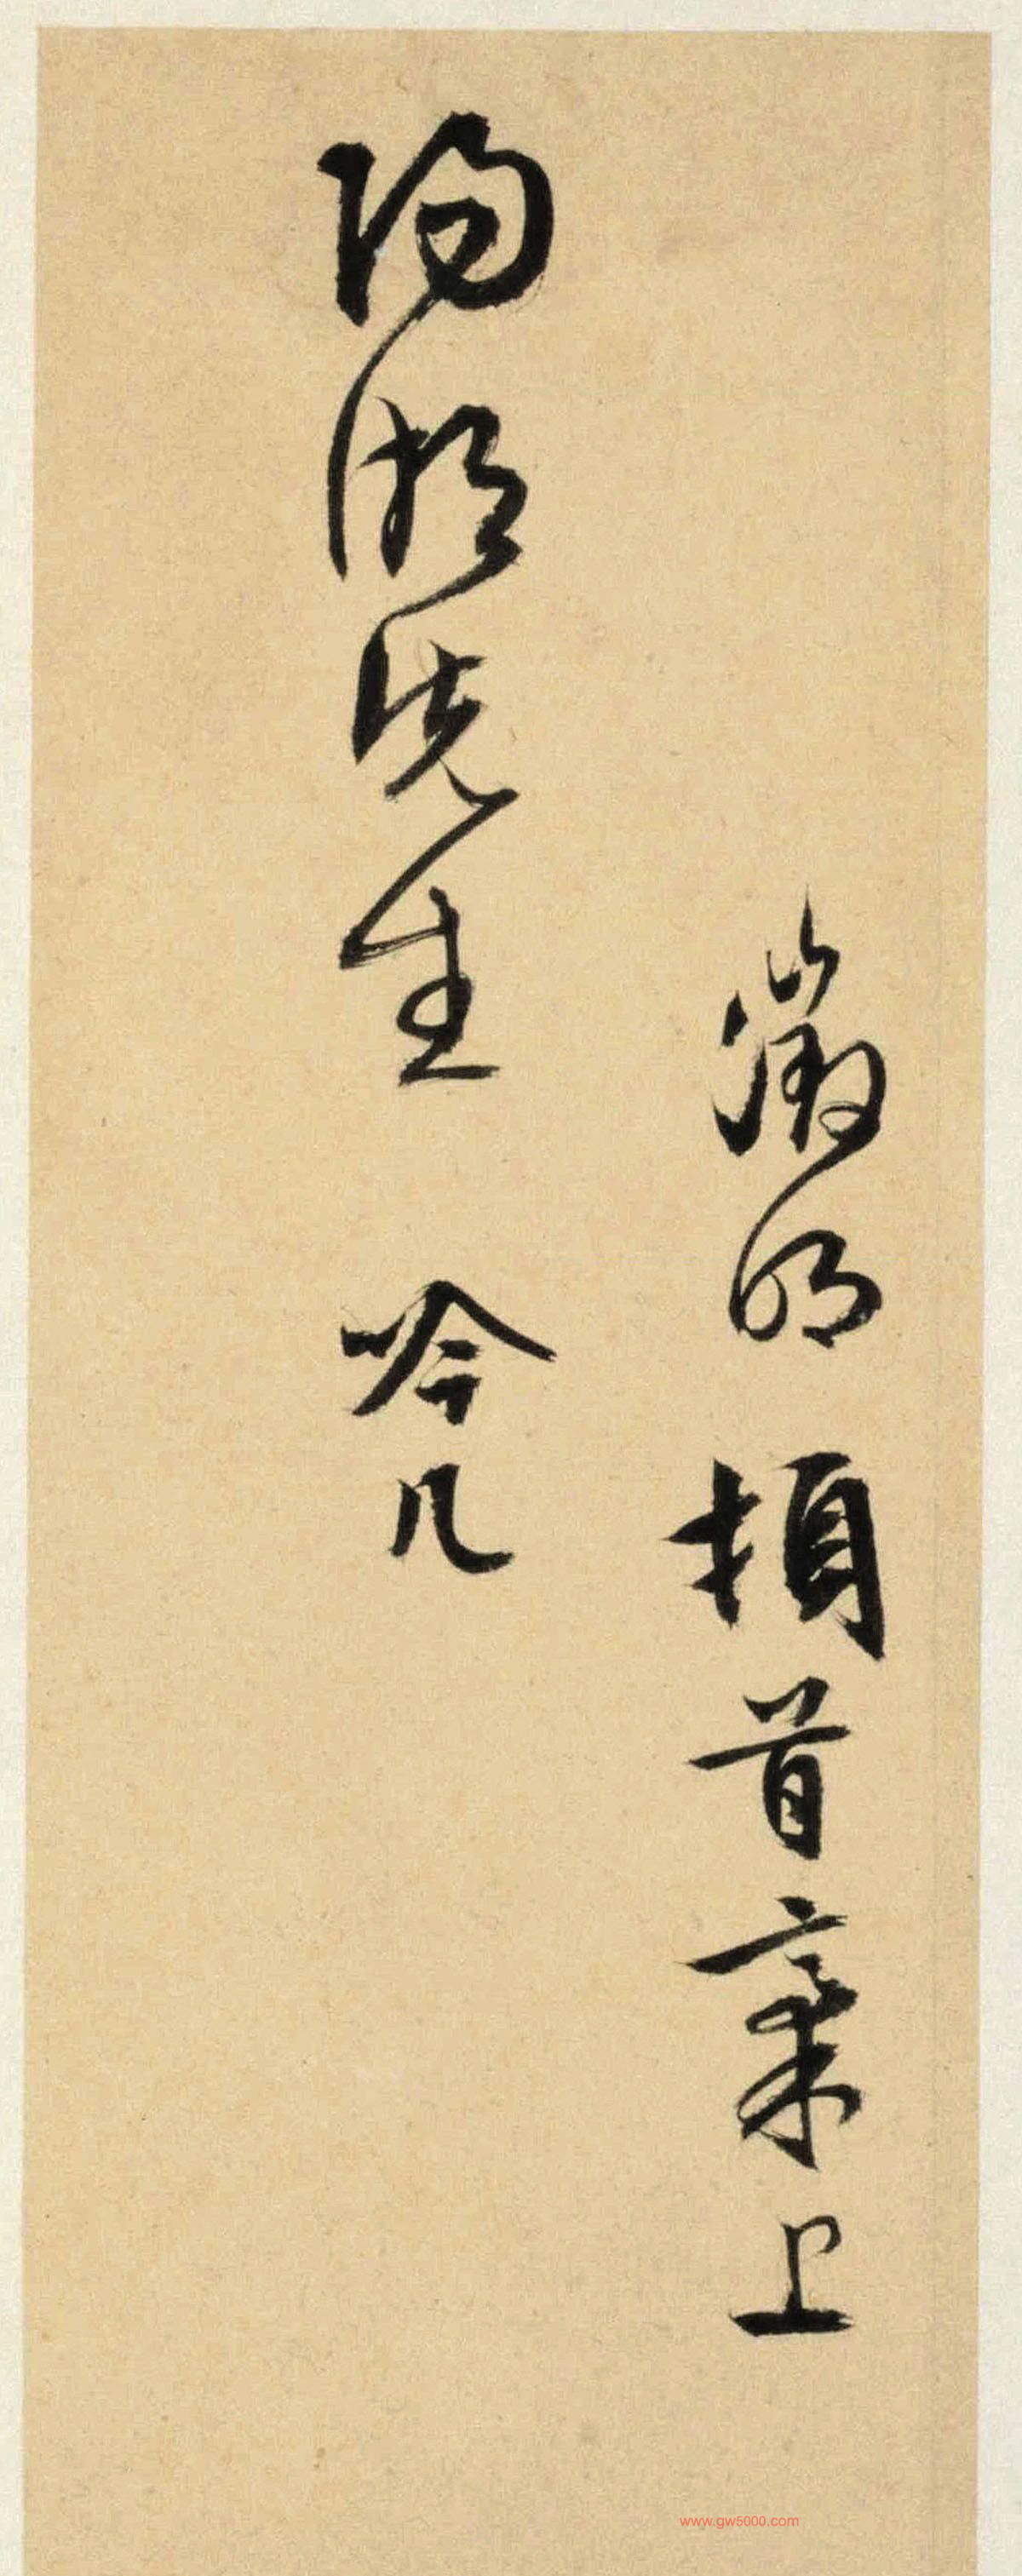 徵明頓首稾上
陽湖先生吟几
www.gw5000.com